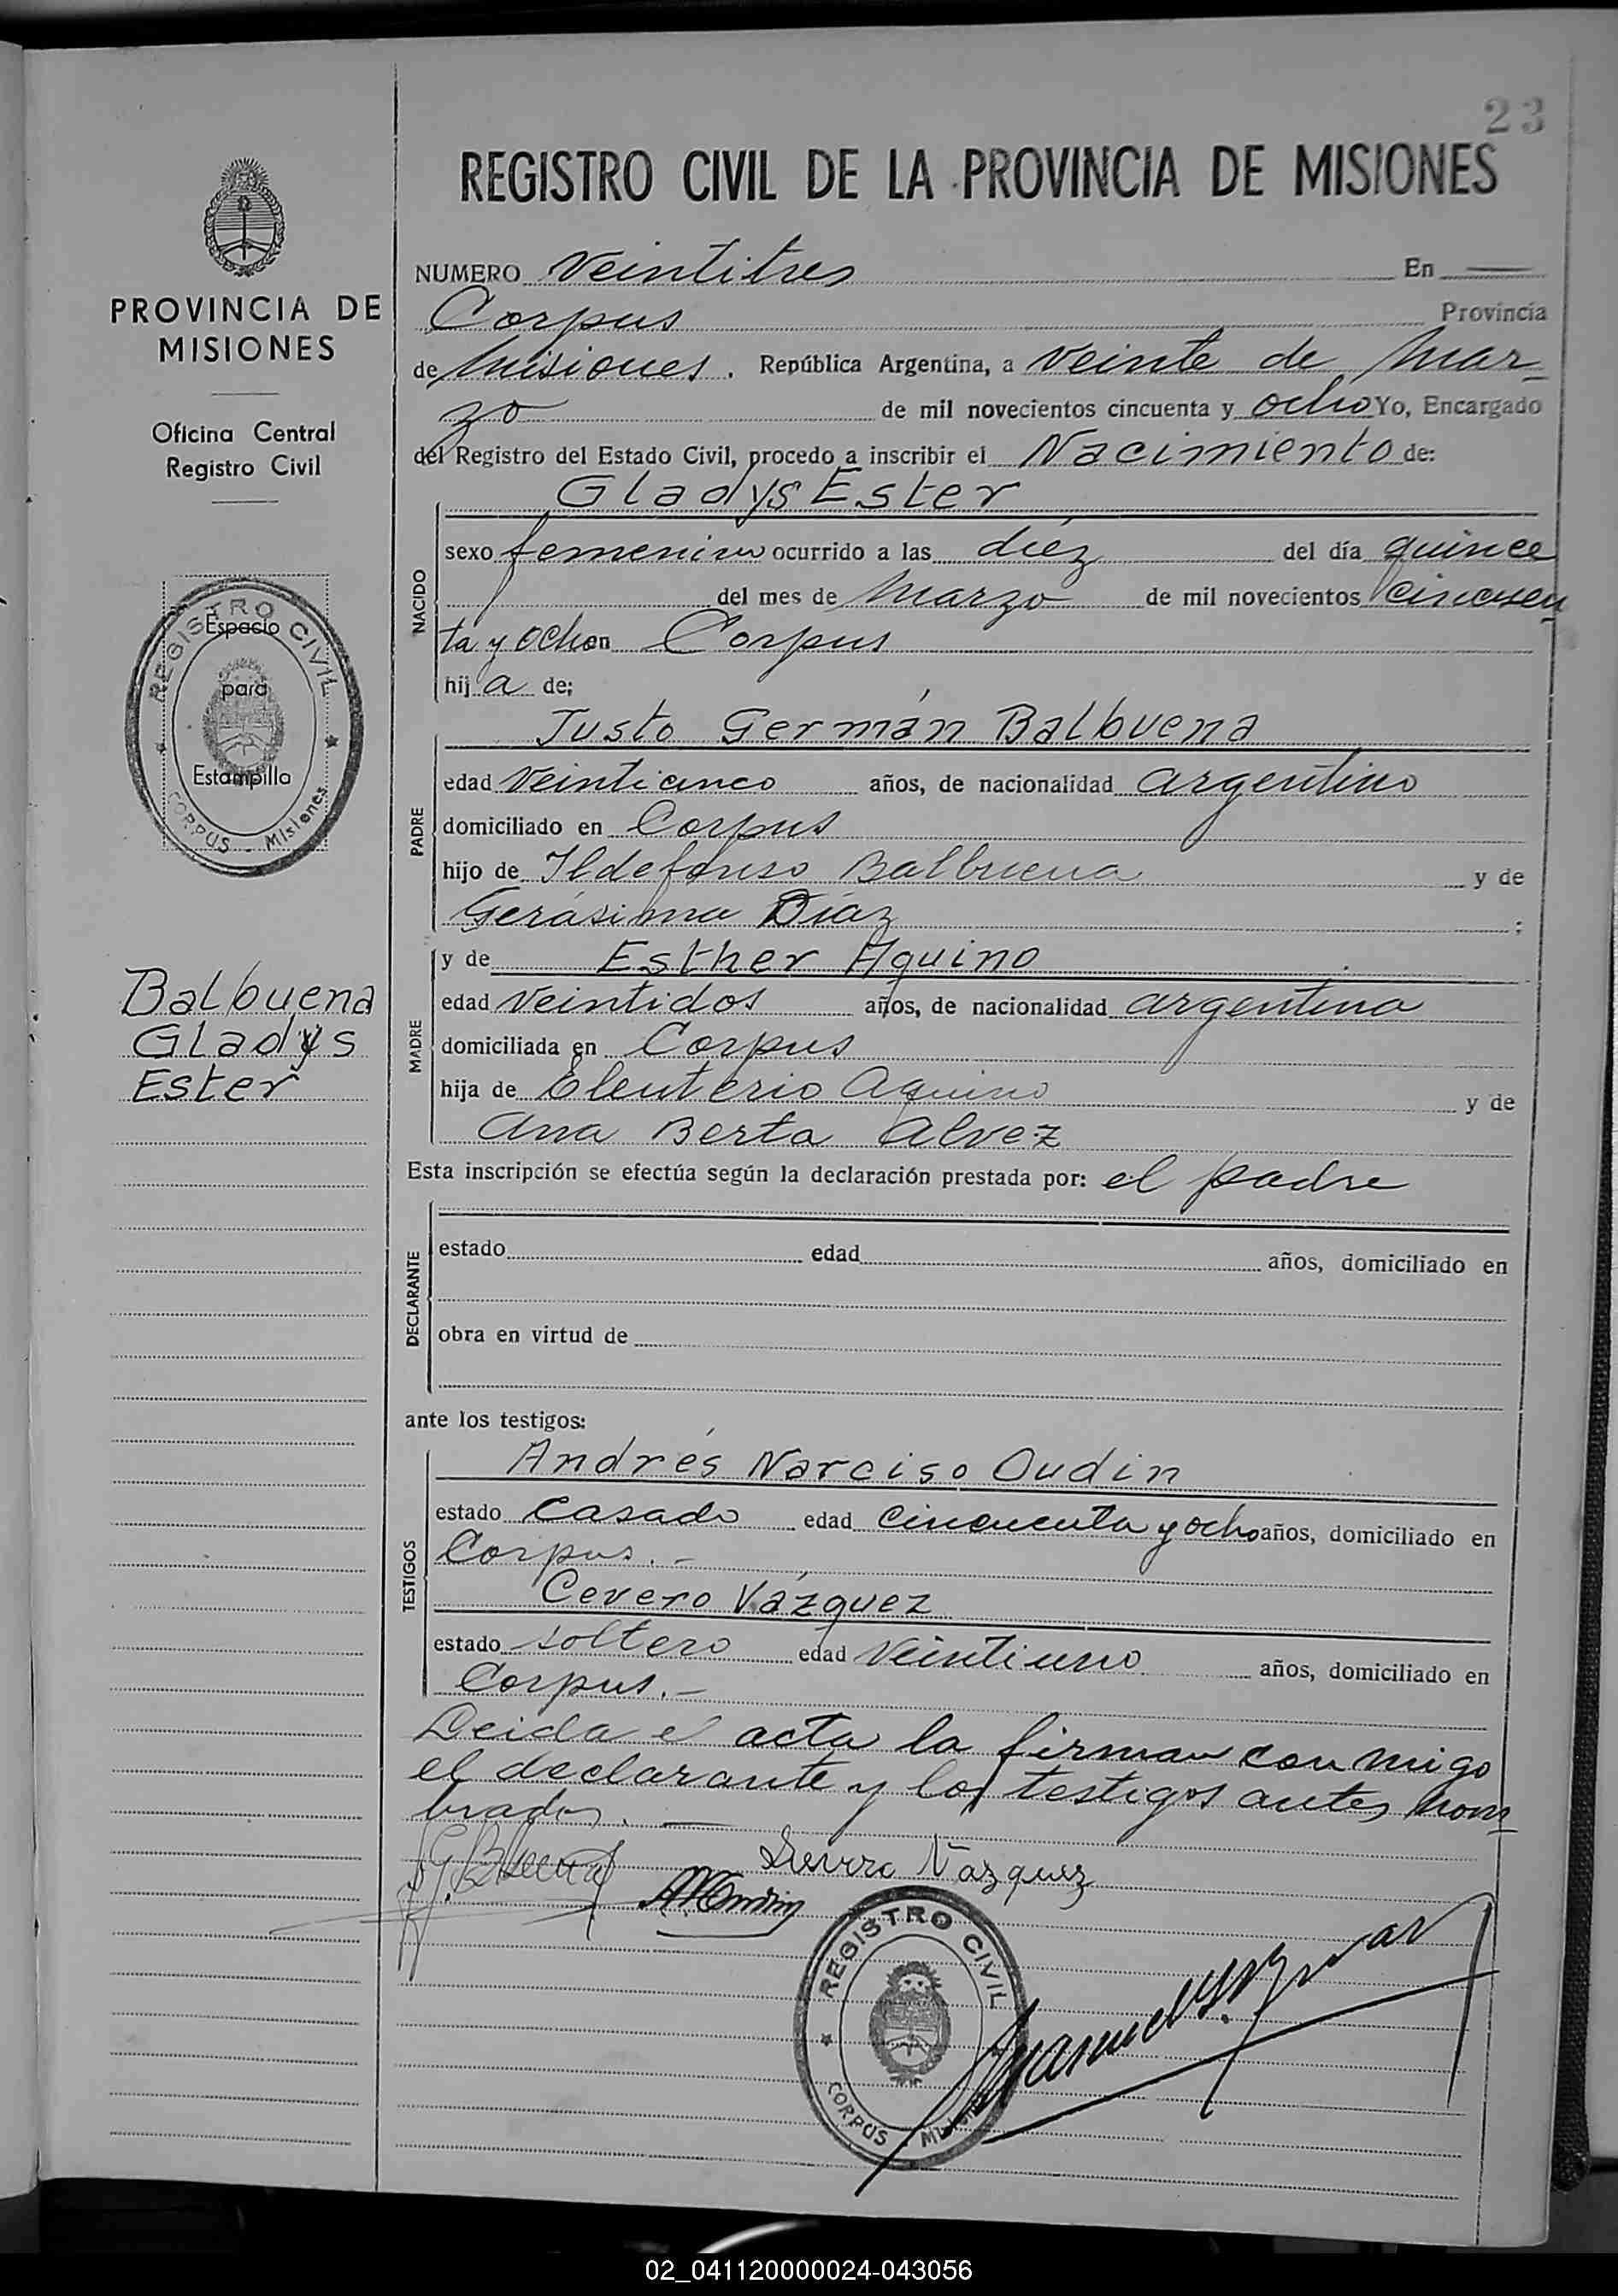 23
REGISTRO CIVIL DE LA PROVINCIA DE MISIONES
PROVINCIA DE
MISIONES
Oficina Central
Registro Civil
REGISTRO CIVIL
Espacio
para
Estampilla
CORPUS - Misiones
Balbuena
Gladys
Ester
NUMERO Veintitres En
Corpus Provincia
de Misiones. República Argentina, a veinte de Mar-
zo de mil novecientos cincuenta y ocho Yo, Encargado
del Registro del Estado Civil, procedo a inscribir el Nacimiento de:
Gladys Ester
NACIDO
sexo femenino ocurrido a las diéz del día quince
del mes de Marzo de mil novecientos cincuen
ta y ocho en Corpus
hij a de;
Justo Germán Balbuena
PADRE
edad Veinticinco años, de nacionalidad argentino
domiciliado en Corpus
hijo de Ildefonso Balbuena y de
Gerásima Díaz ;
y de Esther Aquino
MADRE
edad Veintidos años, de nacionalidad argentina
domiciliada en Corpus
hija de Eleuterio Aquino y de
Ana Berta Alvez
Esta inscripción se efectúa según la declaración prestada por: el padre
DECLARANTE
estado edad años, domiciliado en
obra en virtud de
ante los testigos:
TESTIGOS
Andrés Narciso Oudin
estado Casado edad cincuenta y ocho años, domiciliado en
Corpus.-
Cevero Vázquez
estado soltero edad Veintiuno años, domiciliado en
Corpus.-
Leida el acta la firman conmigo
el declarante y los testigos antes nom
brados.
Vazquez
REGISTRO CIVIL
CORPUS - Misiones
02_041120000024-043056